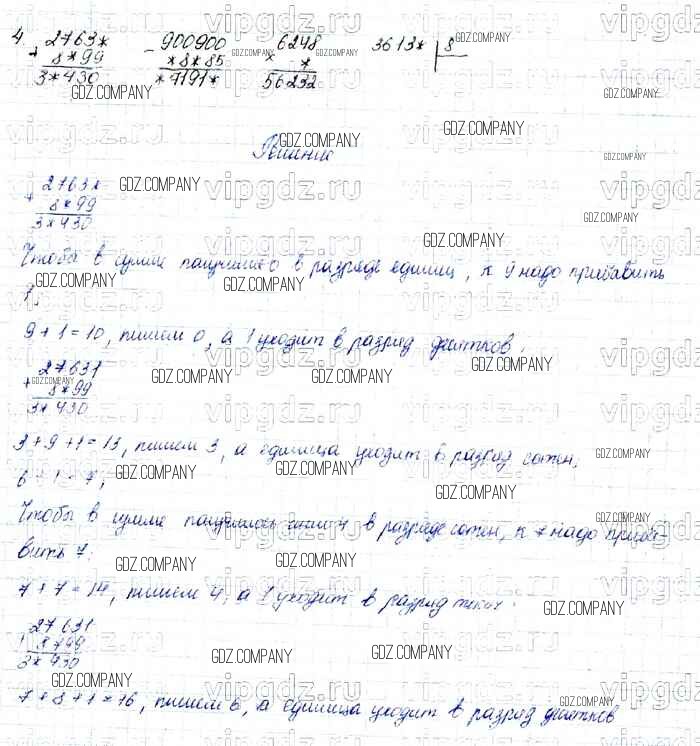 4. 2763* 900900 6248 3613* | 8
+ 8*99 - *8*85 × *
3*430 *7191* 56232
Решение
2763*
+ 8*99
3*430
Чтобы в сумме получилось 0 в разряде единиц, к 9 надо прибавить
1.
9+1=10, пишем 0, а 1 уходит в разряд десятков.
27631
+ 8*99
3*430
3+9+1=13, пишем 3, а единица уходит в разряд сотен,
6+1=7;
Чтобы в сумме получилось число 4 в разряде сотен, к 7 надо приба-
вить 7:
7+7=14, пишем 4, а 1 уходит в разряд тысяч.
27631
+ 8799
3*430
7+8+1=16, пишем 6, а единица уходит в разряд десятков
GDZ.COMPANY
vipgdz.ru